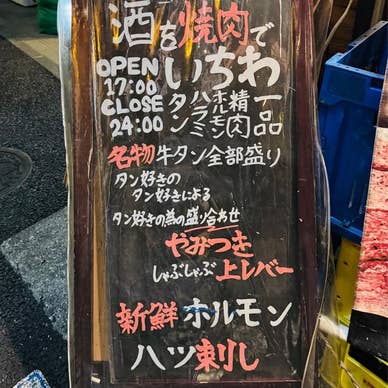 酒を焼肉で
OPEN いちわ
17:00
CLOSE
24:00
タン ハラミ ホルモン 精肉 一品
名物 牛タン全部盛り
タン好きの
タン好きによる
タン好きの為の盛り合わせ
やみつき
しゃぶしゃぶ上レバー
新鮮ホルモン
ハツ刺し